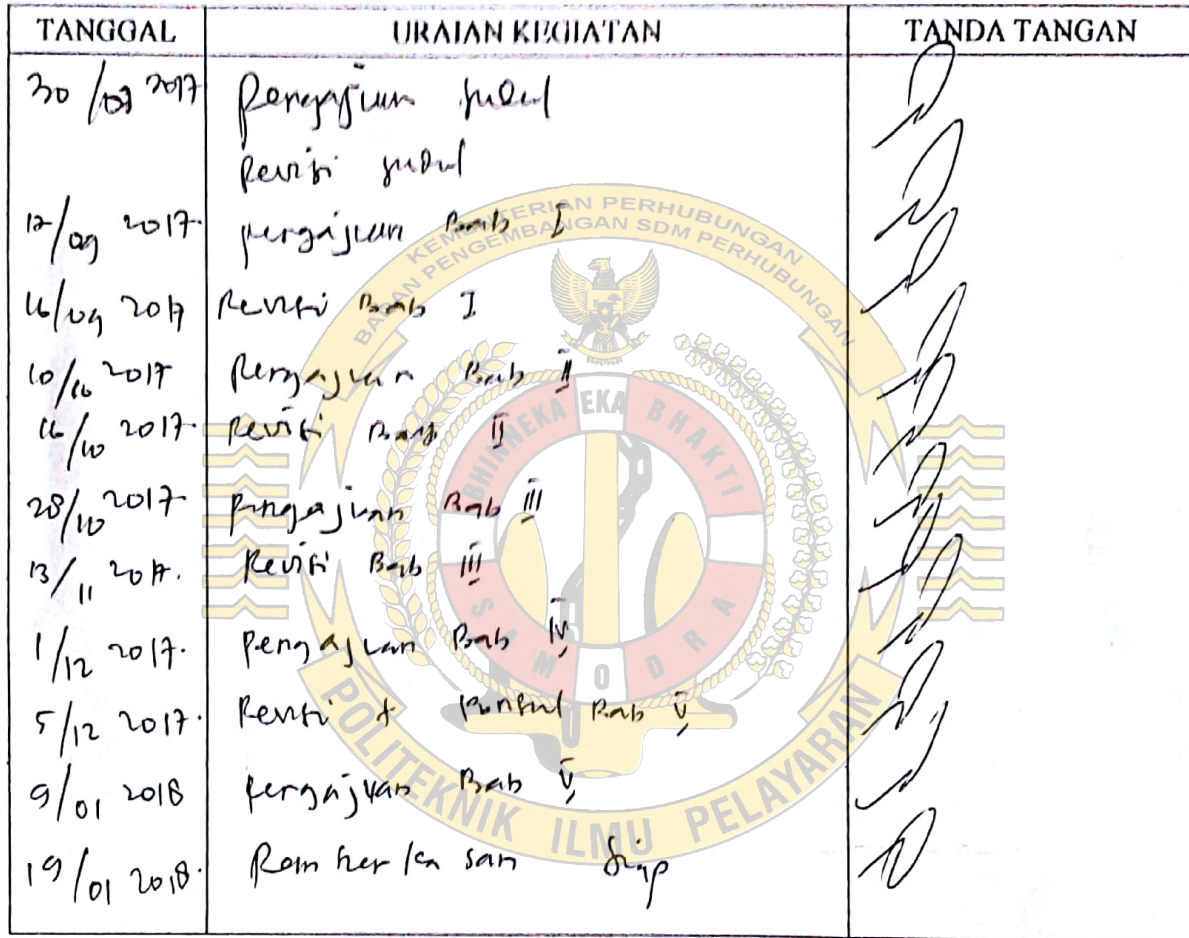 TANGGAL URAIAN KEGIATAN TANDA TANGAN
30/07 2017 Pengajuan judul
Revisi judul
12/09 2017. pengajuan Bab I
16/09 2017 Revisi Bab I
10/10 2017 Pengajuan Bab II
16/10 2017. Revisi Bab II
28/10 2017. Pengajuan Bab III
13/11 2017. Revisi Bab III
1/12 2017. Pengajuan Bab IV
5/12 2017. Revisi + Bab V
9/01 2018 Pengajuan Bab V
19/01 2018. siap
KEMENTERIAN PERHUBUNGAN
BADAN PENGEMBANGAN SDM PERHUBUNGAN
BHINNEKA EKA BHAKTI
SAMODRA
POLITEKNIK ILMU PELAYARAN